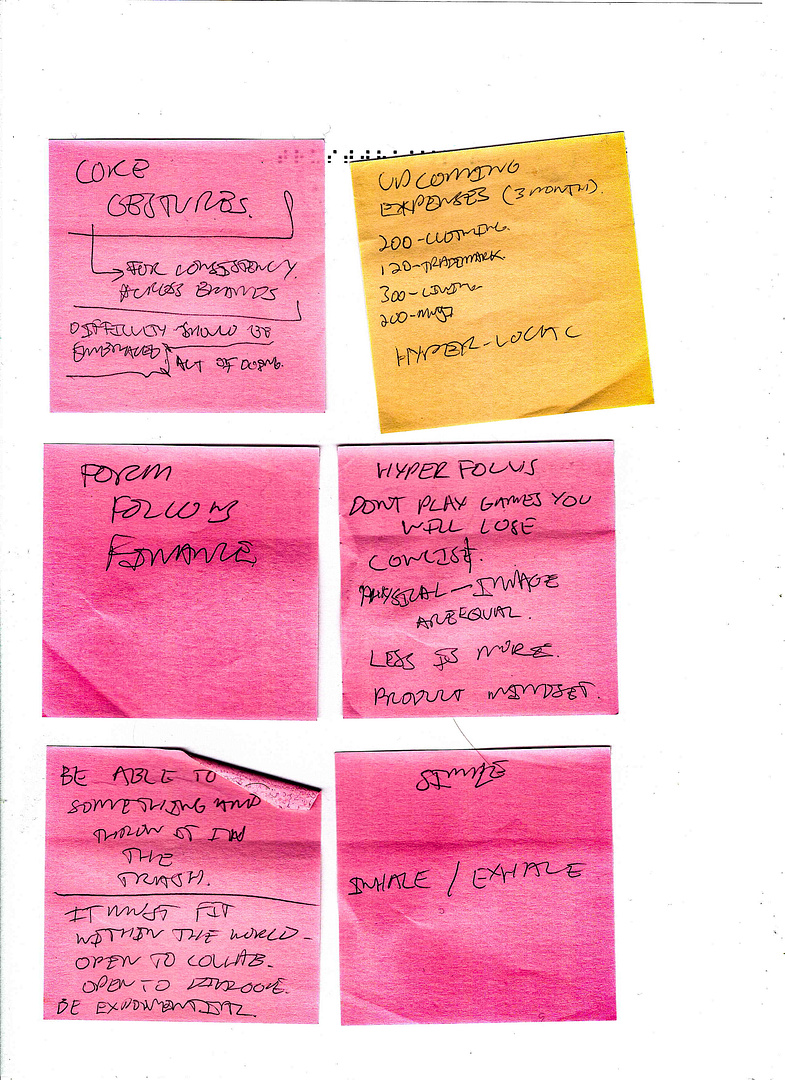 CORE
GESTURES.
FOR CONSISTENCY
ACROSS BRANDS
DIFFICULTY SHOULD BE
EMBRACED
ACT OF DOING.
UPCOMING
EXPENSES (3 MONTHS).
200-CLOTHING.
120-TRADEMARK
300-LIVING
200-
HYPER-LOCAL
FORM
FOLLOWS
FINANCE
HYPER FOCUS
DONT PLAY GAMES YOU
WILL LOSE
CONCISE.
PHYSICAL-IMAGE
ARE EQUAL.
LESS IS MORE.
PRODUCT MINDSET.
BE ABLE TO
SOMETHING AND
THROW IT IN
THE
TRASH.
IT MUST FIT
WITHIN THE WORLD-
OPEN TO COLLAB-
OPEN TO DIALOGUE.
BE EXPONENTIAL
SIMPLE
INHALE / EXHALE